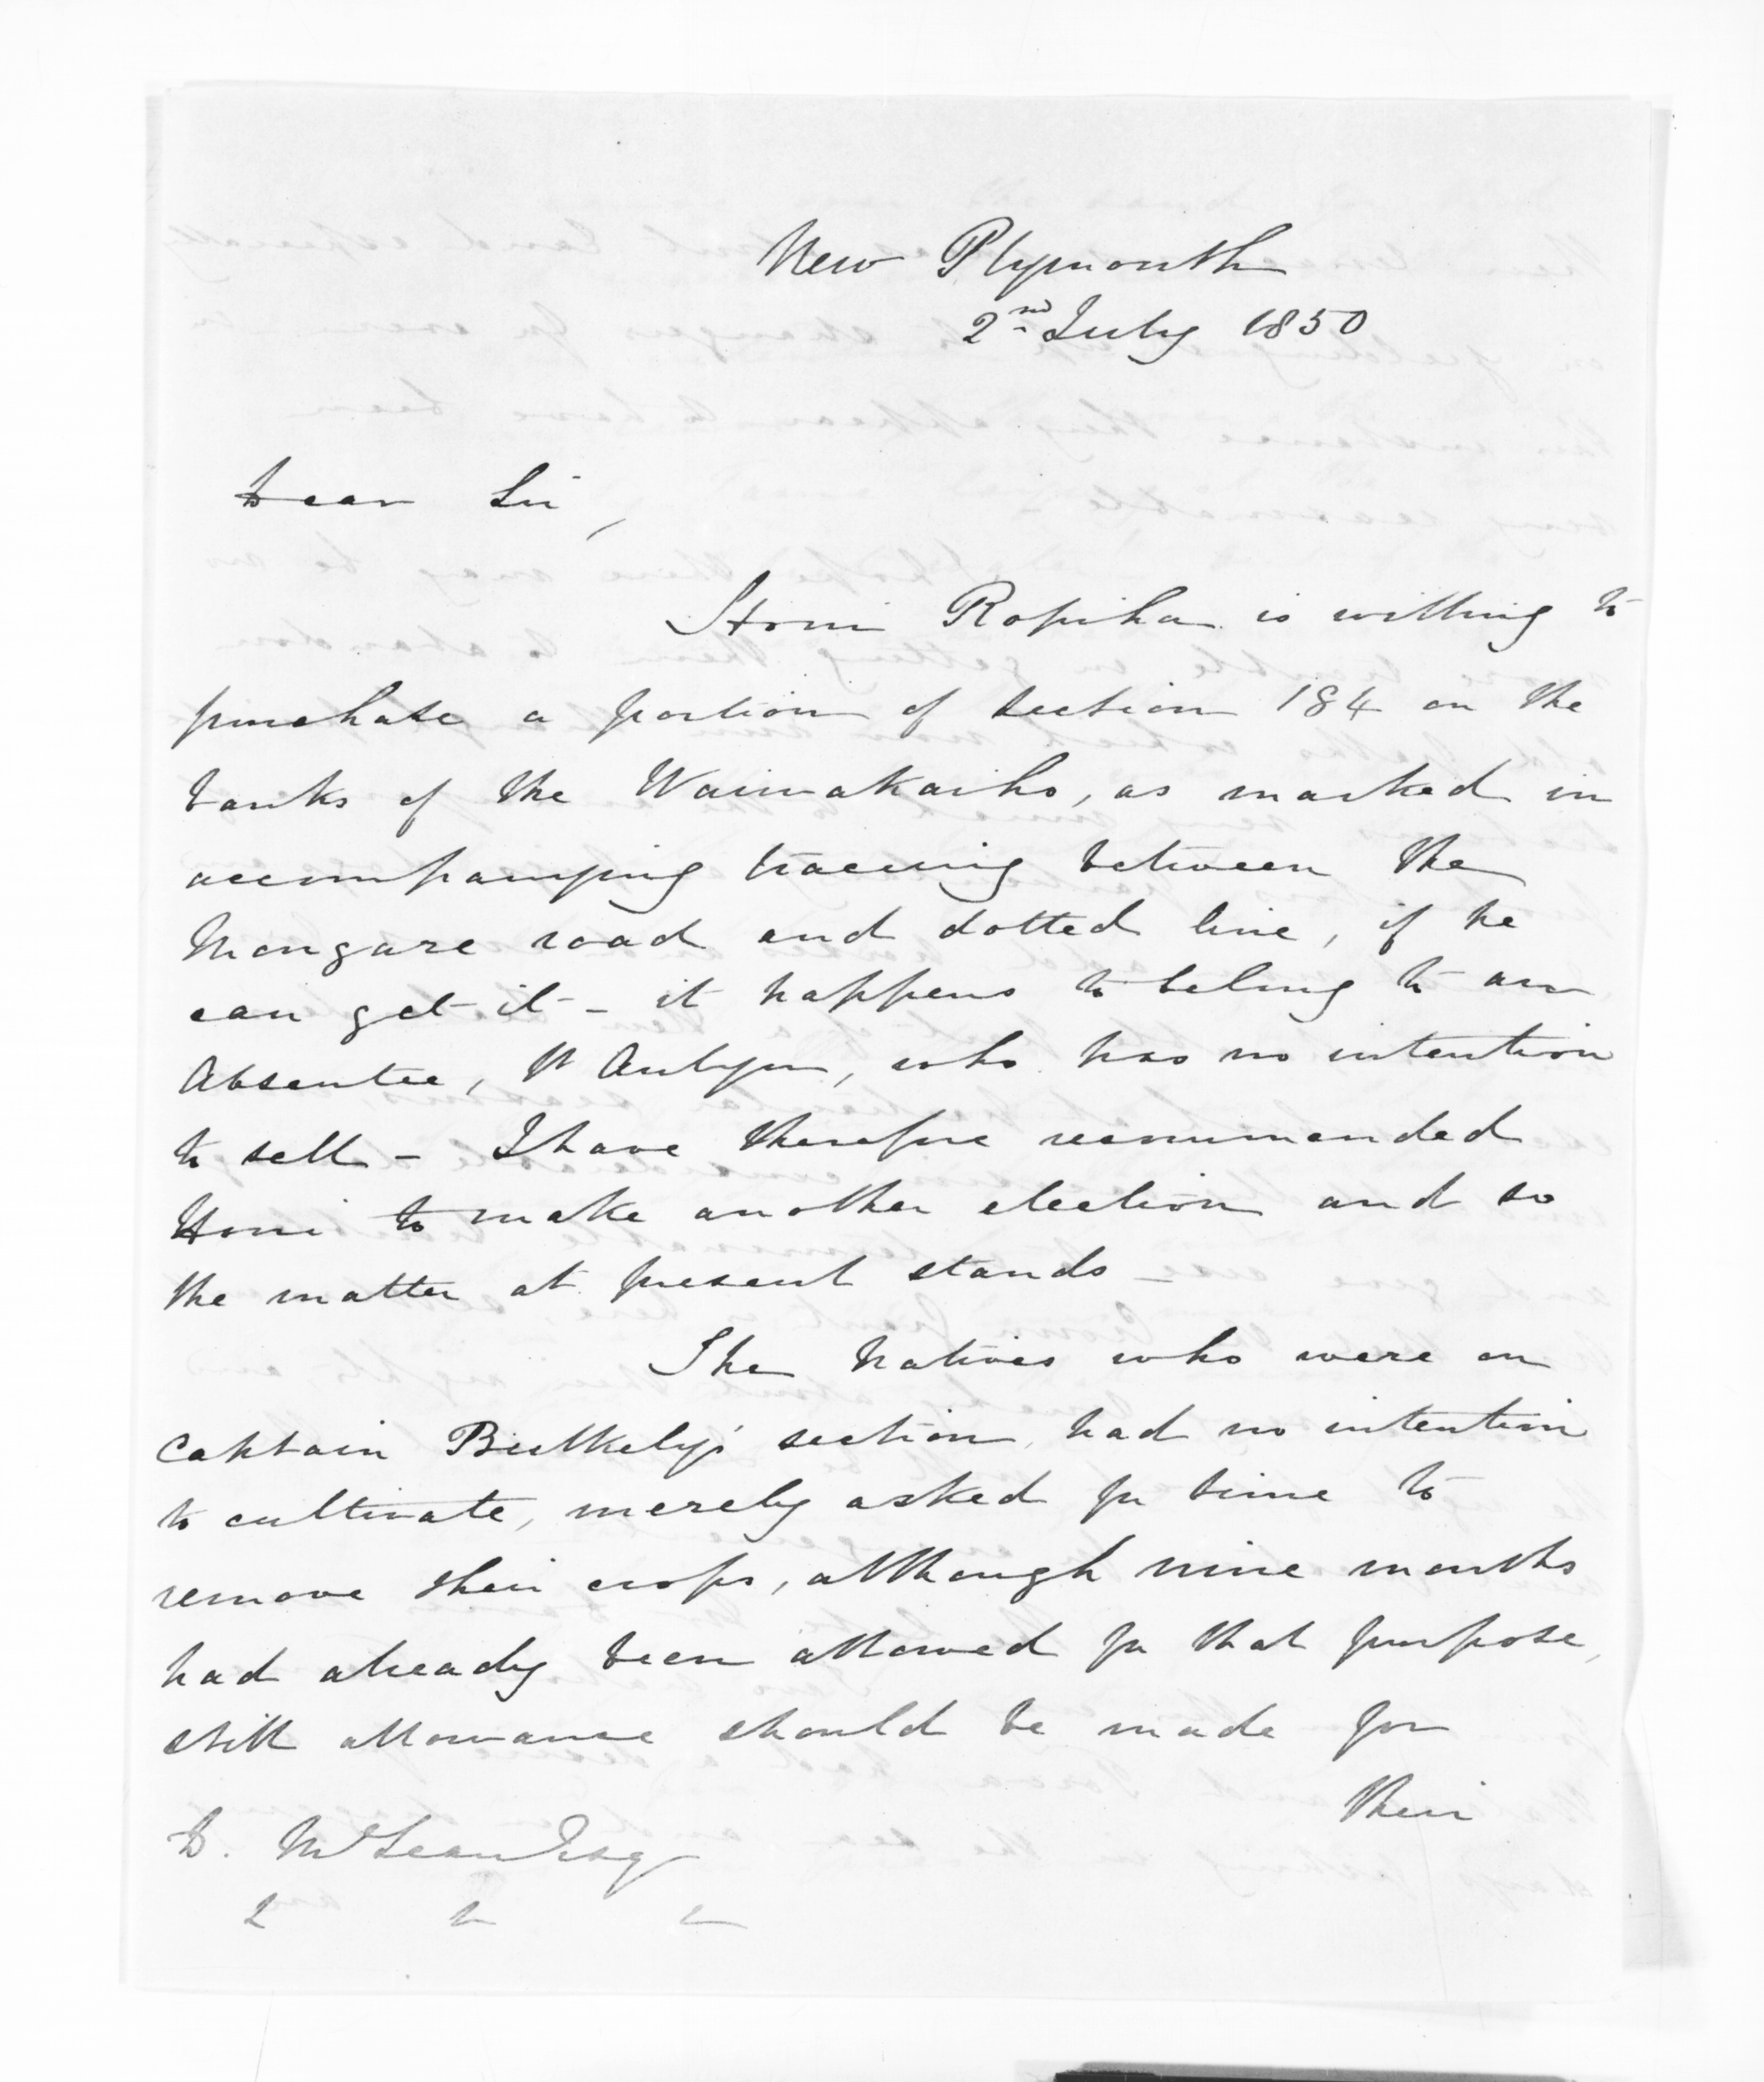 New Plymouth
2nd July 1850
Dear Sir,
Honi Ropiha is willing to
purchase a portion of section 184 on the
banks of the Waiwakaiho, as marked in
accompanying tracing between the
Mongare road and dotted line, if he
can get it - it happens to belong to an
Absentee, St Aubyn, who has no intention
to sell - I have therefore recommended
Honi to make another election and so
the matter at present stands -
The Natives who were on
Captain Bulkely's section, had no intention
to cultivate, merely asked for time to
remove their crops, although nine months
had already been allowed for that purpose,
still allowance should be made for
their
D. McLean Esq